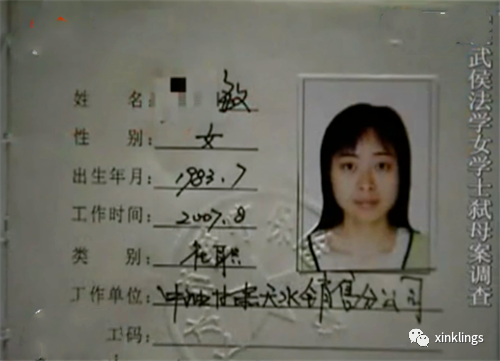 姓 名: 敏
性 别: 女
出生年月: 1983.7
工作时间: 2007.8
类 别: 在职
工作单位: 中油甘肃天水销售分公司
工码:
武侯法学女学士弑母案调查
xinklings